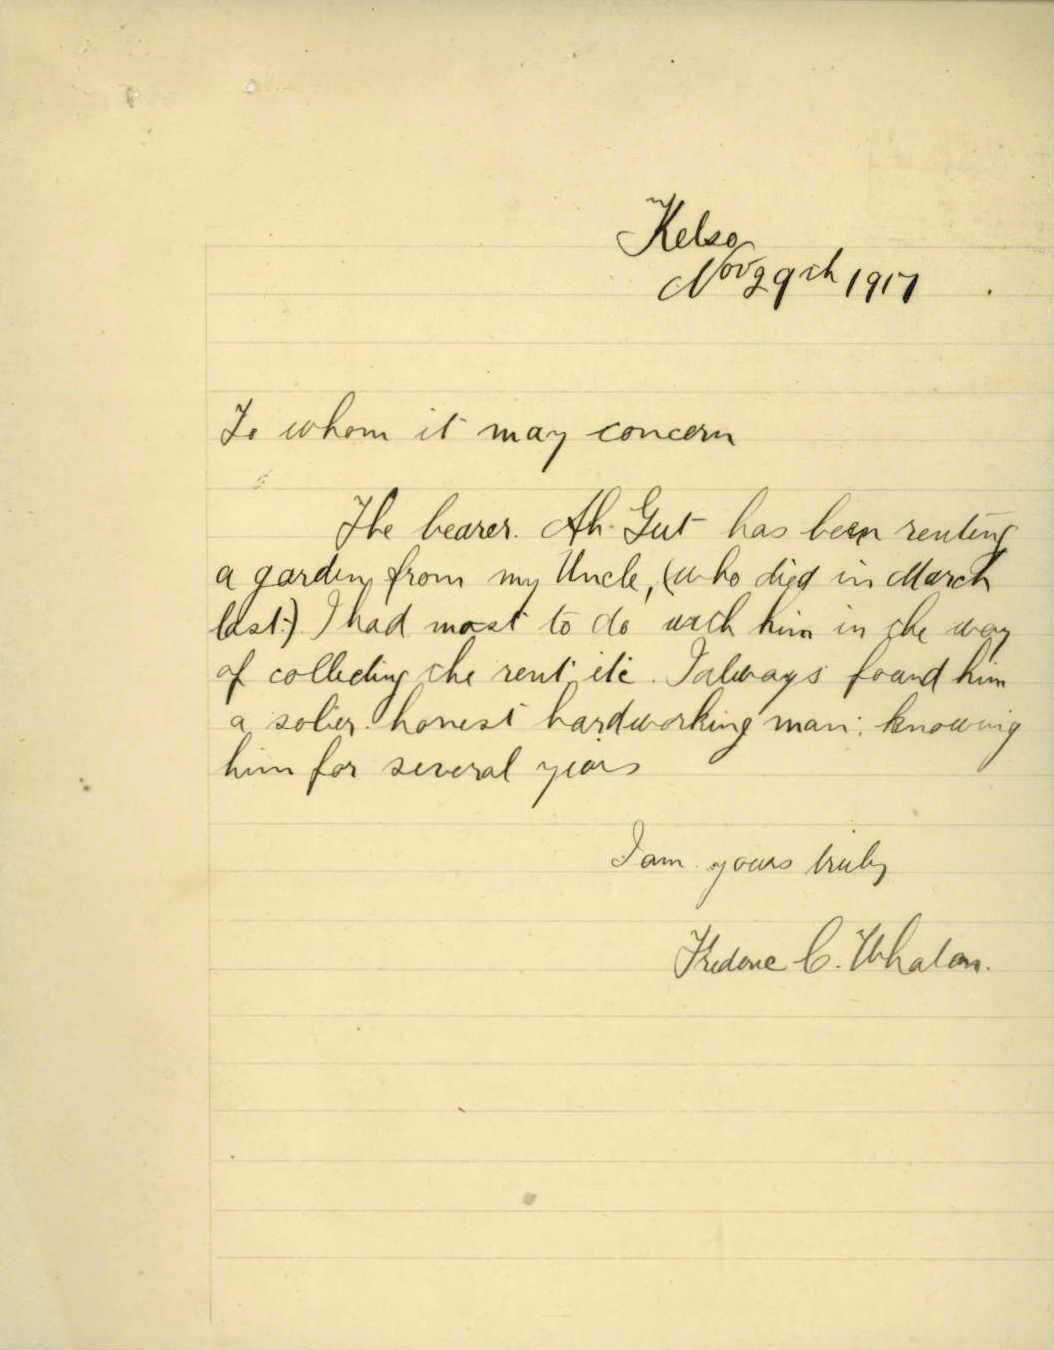 Kelso
Nov 29th 1917
To whom it may concern
The bearer. Ah Gut has been renting
a garden from my Uncle, (who died in March
last.) I had most to do with him in the way
of collecting the rent etc. I always found him
a sober honest hardworking man; knowing
him for several years
I am yours truly
C. Whalan.